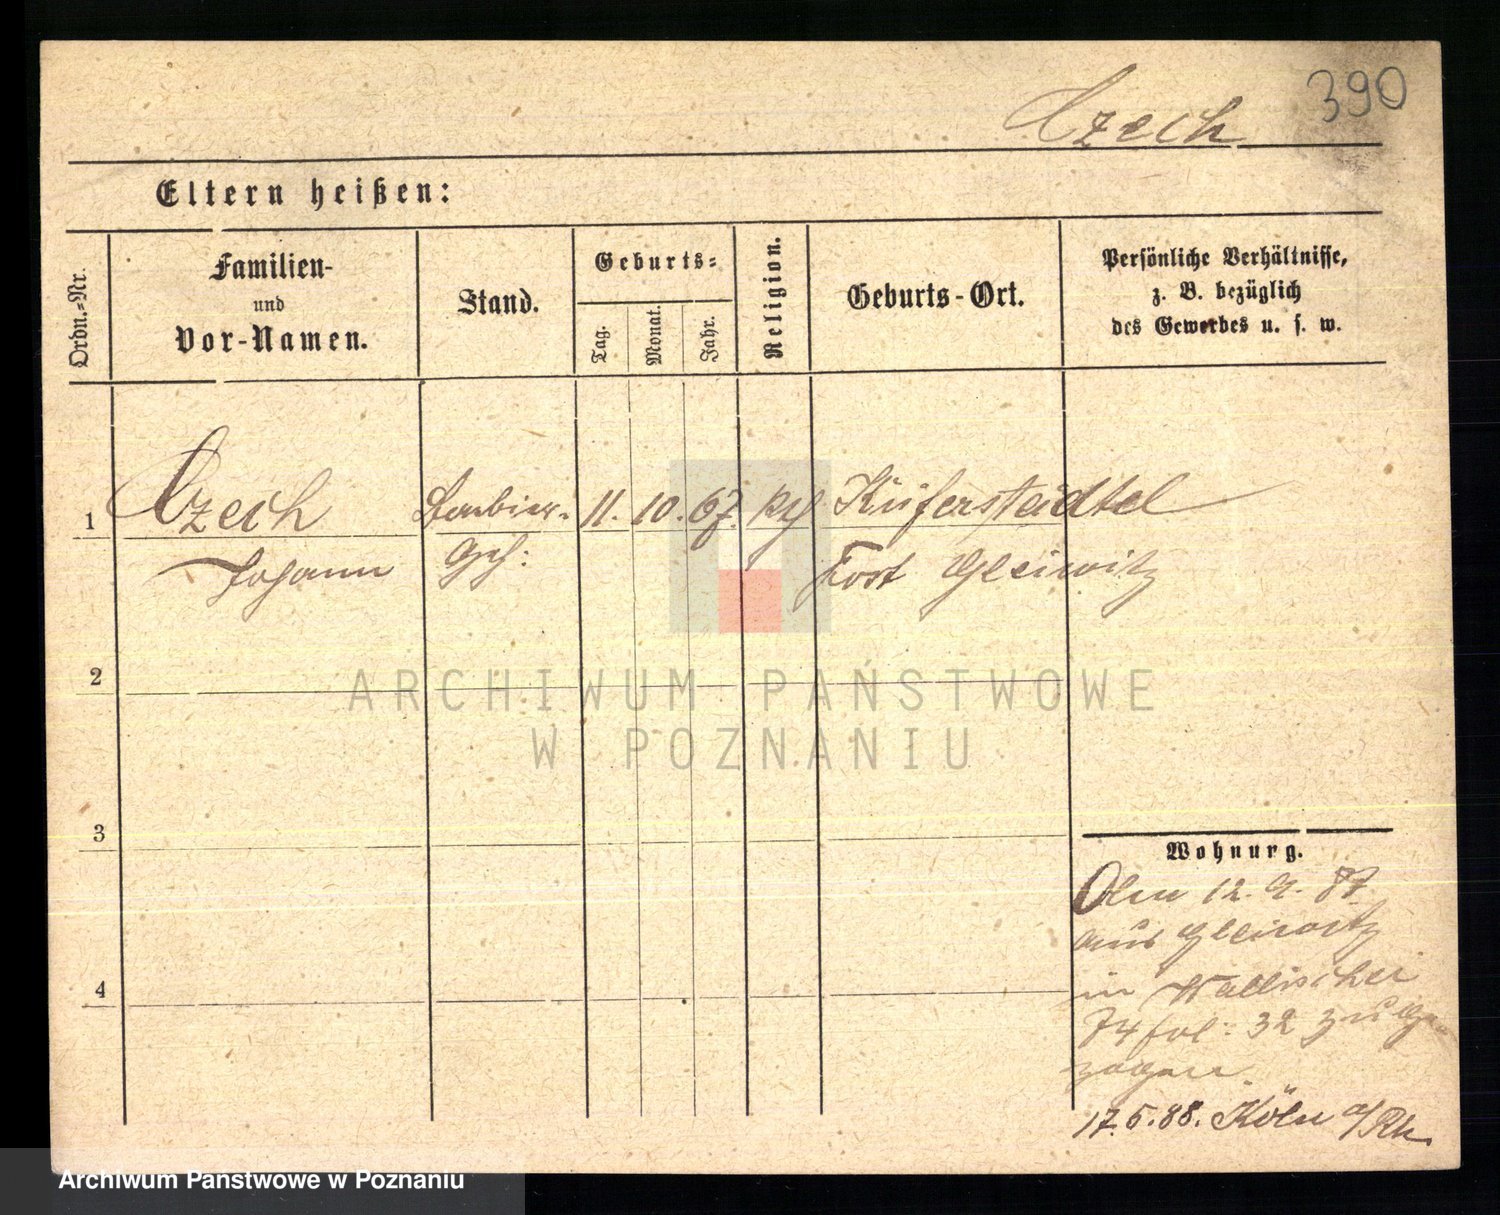 390
Czech
Eltern heißen:
Ordn.-Nr.
Familien-
und
Vor-Namen.
Stand.
Geburts-
Tag.
Monat.
Jahr.
Religion.
Geburts-Ort.
Persönliche Verhältnisse,
z. B. bezüglich
des Gewerbes u. s. w.
1 Czech Barbier- 11. 10. 67. kth Kieferstädtel
Johann Geh: Post Gleiwitz
2
ARCHIWUM PAŃSTWOWE
W POZNANIU
3
Wohnung.
12. 9. 87
aus Gleiwitz
in Wallischei
74 fol: 32 zuge
zogen
4
17.5.88. Köln a/Rh.
Archiwum Państwowe w Poznaniu